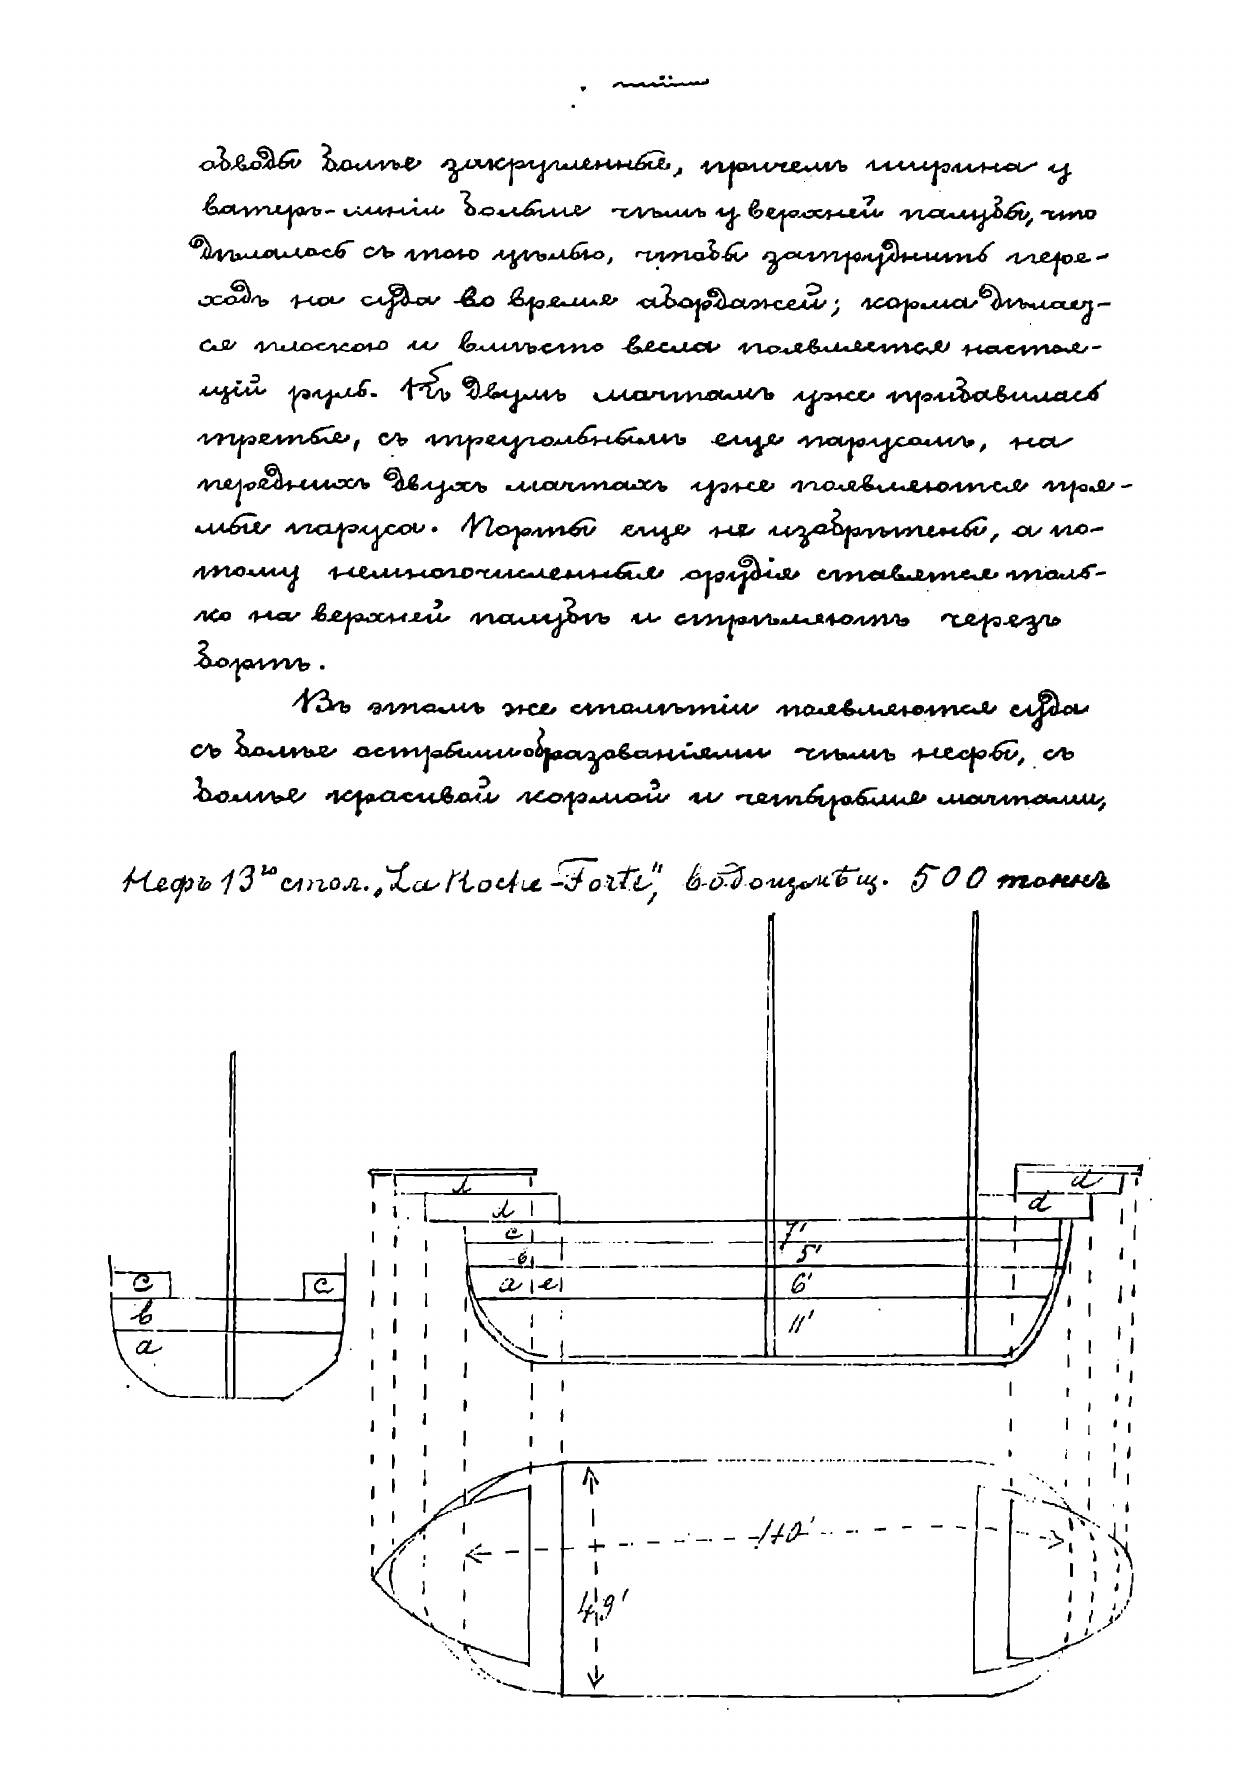 обводы болѣе закругленные, причемъ ширина у
ватеръ-линіи больше чѣмъ у верхней палубы, что
дѣлалось съ тою цѣлью, чтобы затруднить пере-
ходъ на суда во время абордажей; корма дѣлает-
ся плоскою и вмѣсто весла появляется настоя-
щій руль. Къ двумъ мачтамъ уже прибавилась
третья, съ треугольнымъ еще парусомъ, на
переднихъ двухъ мачтахъ уже появляются пря-
мые паруса. Порты еще не изобрѣтены, а по-
тому немногочисленныя орудія ставятся толь-
ко на верхней палубѣ и стрѣляютъ черезъ
бортъ.
Въ этомъ же столѣтіи появляются суда
съ болѣе острыми образованіями чѣмъ нефы, съ
болѣе красивой кормой и четырьмя мачтами,
Нефъ 13го стол. „La Roche-Forte", водоизмѣщ. 500 тоннъ
d
d
d
d
c
7'
в
5'
a e
6'
11'
c
c
b
a
140'
49'